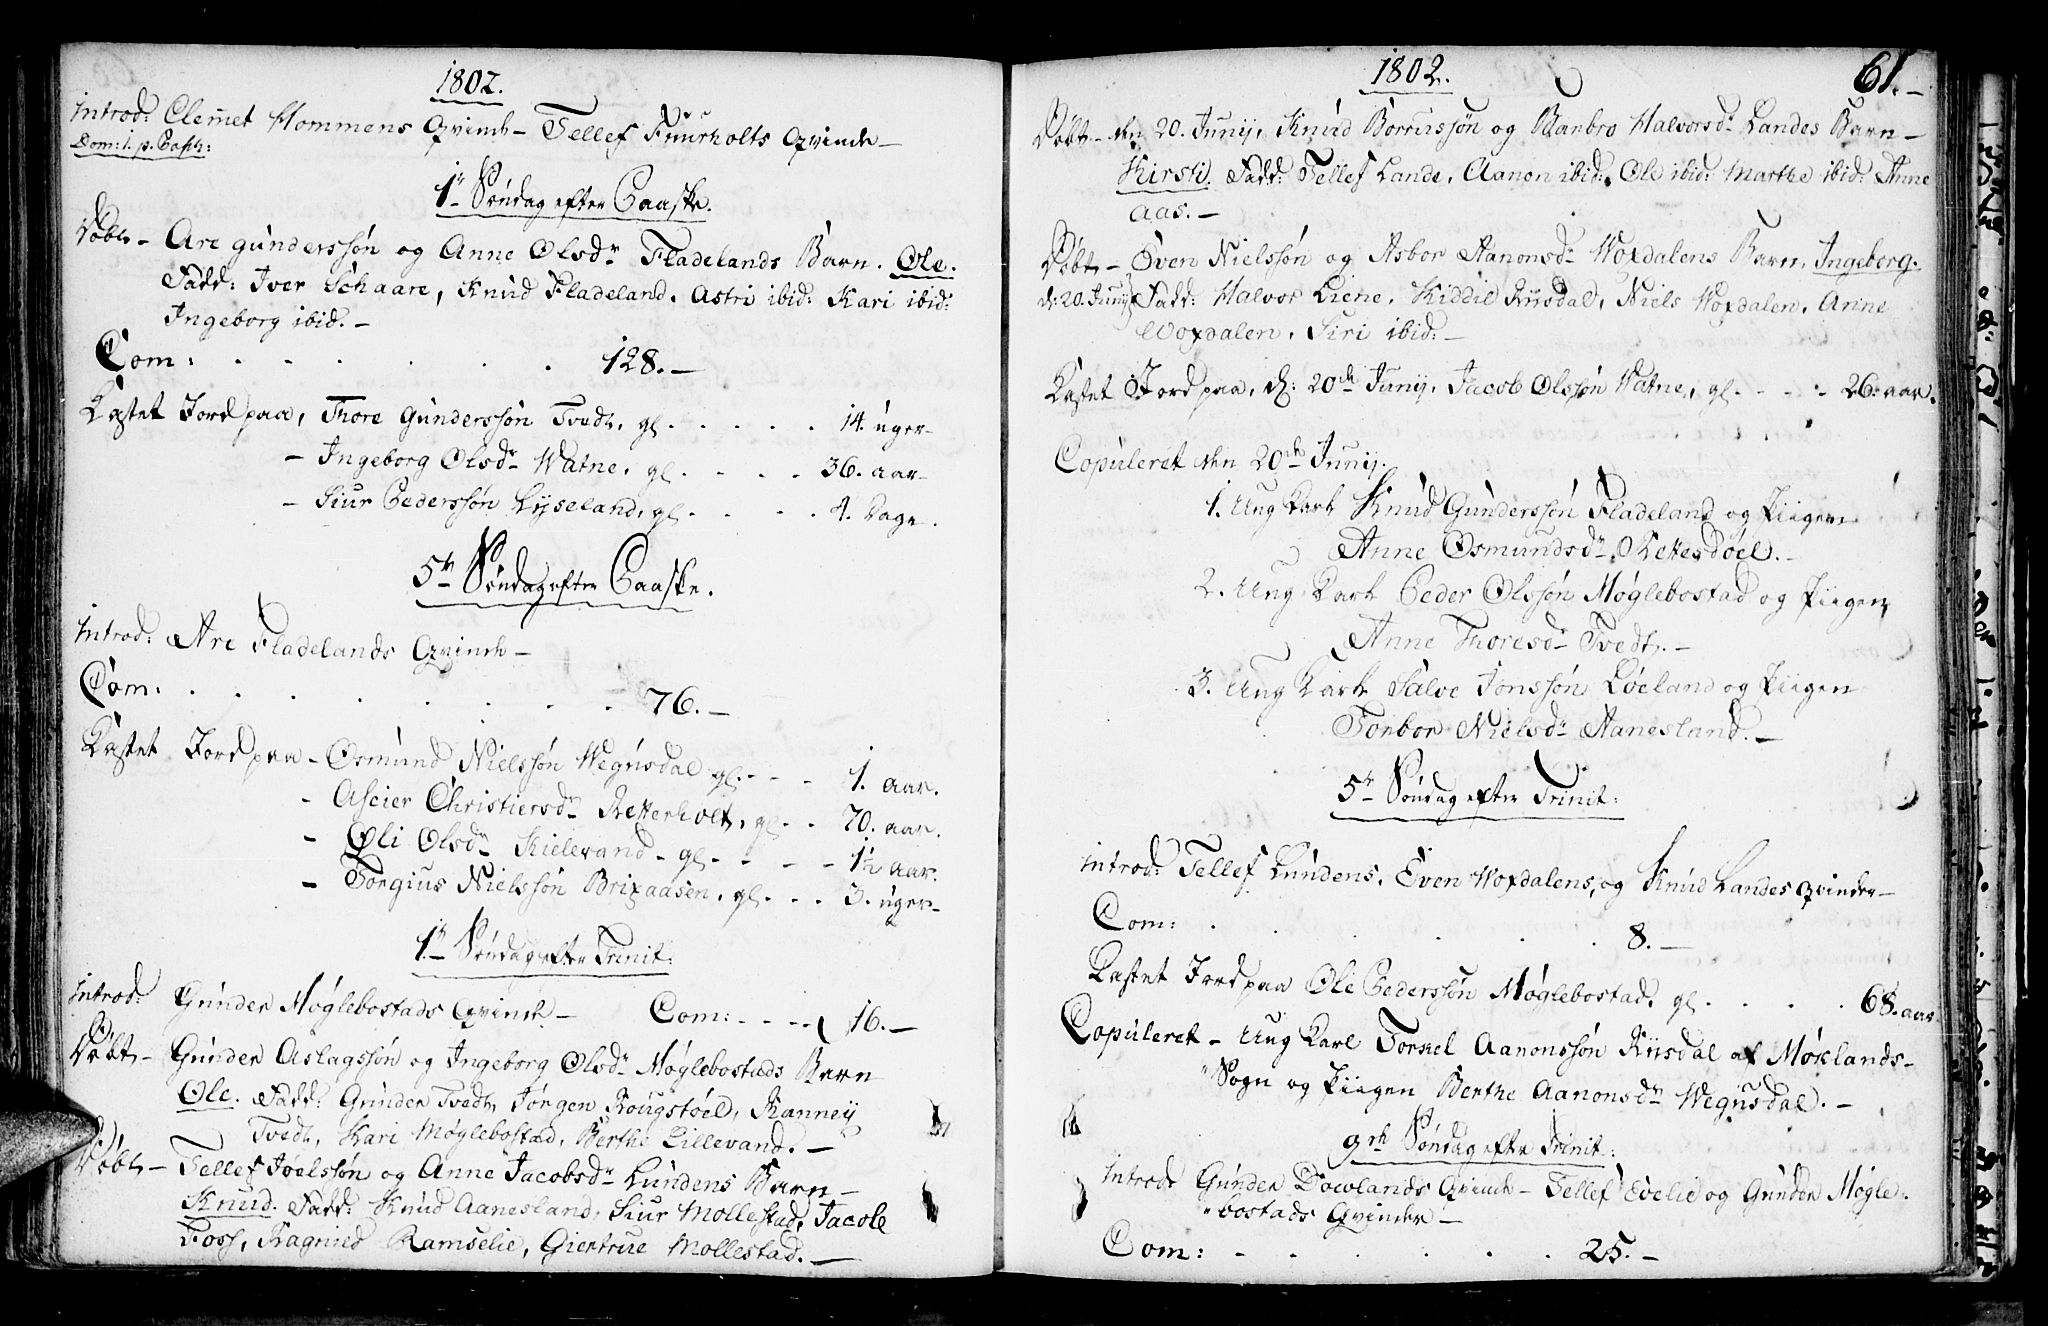 1802.
Introd: Clemet Hommens Qvinde - Tellef Fuurholts Qvinde -
Dom: 1. p. Pasch:
1te Søndag efter Paaske.
Døbt - Are Gunderssøn og Anne Olsdr Fladelands Barn. Ole.
Fadd: Iver Schaare, Knud Fladeland, Astri ibid: Kari ibid:
Ingeborg ibid. -
Com: . . . . . . . 128. -
Kastet Jord paa, Thore Gunderssøn Tvedt, gl. . . . . 14. uger -
- Ingeborg Olsdr Watne, gl. . . . 36. aar -
- Siur Pederssøn Lyseland, gl. . . . . 4. Dage.
5te Søndag efter Paaske.
Introd: Are Fladelands Qvinde -
Com: . . . . . . . . 76. -
Kastet Jord paa - Osmund Nielssøn Wegusdal gl. - - - 1. aar.
- Aseier Christiersdr Retterholt, gl. . . 70. aar.
- Øli Olsdr Kielevand - gl. - - - - 1½ aar.
- Torgius Nielssøn Brixaasen, gl. . . . 3. uger -
1te Søndag efter Trinit:
Introd: Gunder Møglebostads Qvinde - Com: - - - - 16. -
Døbt - Gunder Aslagssøn og Ingeborg Olsdr Møglebostads Barn
Ole. Fadd: Gunder Tvedt, Jørgen Rougstøel, Ranney
Tvedt, Kari Møglebostad, Berthe Lillevand. -
Døbt - Tellef Joelssøn og Anne Jacobsdr Lundens Barn -
Knud. Fadd: Knud Aanesland, Siur Mollestad, Jacob
Foss, Ragnied Ramselie, Giertrue Mollestad. -
1802. 61. -
Døbt - den 20. Junij, Knud Borrussøn og Barbro Halvorsdr Landes Barn -
Kirsti. Fadd: Tellef Lande, Aanon ibid: Ole ibid: Marthe ibid: Anne
Aas. -
Døbt - Even Nielssøn og Asbor Aanonsdr Woxdalens Barn, Ingeborg.
d: 20. Junij Fadd: Halvor Liene, Kiddil Riisdal, Niels Woxdalen, Anne
Woxdalen, Siri ibid: -
Kastet Jord paa, d: 20de Junij, Jacob Olssøn Watne, gl. - - - - 26. aar.
Copuleret den 20de Junij.
1. Ung Karl Knud Gunderssøn Fladeland og Piigen
Anne Osmundsdr Skettesdøel. -
2. Ung Karl Peder Olssøn Møglebostad og Piigen
Anne Thoresdr Tvedt. -
3. Ung Karl Salve Jonssøn Løeland og Piigen
Torbor Nielsdr Aanesland. -
5te Søndag efter Trinit:
Introd: Tellef Lundens, Even Woxdalens, og Knud Landes Qvinder -
Com: . . . . . . 8. -
Kastet Jord paa Ole Pederssøn Møglebostad, gl. . . . . 68. aar.
Copuleret - Ung Karl Torkel Aanonssøn Riisdal af Møklands-
Sogn og Piigen Berthe Aanonsdr Wegusdal. -
9de Søndag efter Trinit:
Introd: Gunder Dowlands Qvinde - Tellef Evelie og Gunder Møgle-
bostads Qvinder -
Com: - - . . . . . 25. -